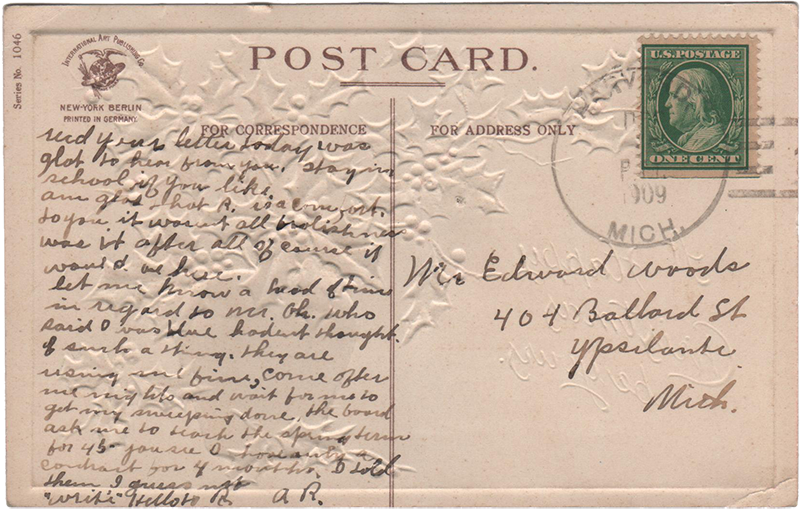 Series No. 1046
INTERNATIONAL ART PUBLISHING CO.
NEW-YORK BERLIN
PRINTED IN GERMANY.
POST CARD.
FOR CORRESPONDENCE
FOR ADDRESS ONLY
U.S. POSTAGE
ONE CENT
1909
MICH.
Recd your letter today was
glad to hear from you. Stay in
school if you like.
am glad that R. is a comfort
to you it wasn't all foolishness
was it after all of course it
would be here.
let me know a head of time
in regard to Mr. Oh. who
said I was blue hadent thought
of such a thing. they are
using me fine, come after
me nights and wait for me to
get my sweeping done, the board
ask me to teach the spring term
for 45- you see I have only a
contract for 4 months. I told
them I guess not
"write" Hello to R. A R.
Mr Edward Woods
404 Ballard St
Ypsilanti
Mich.